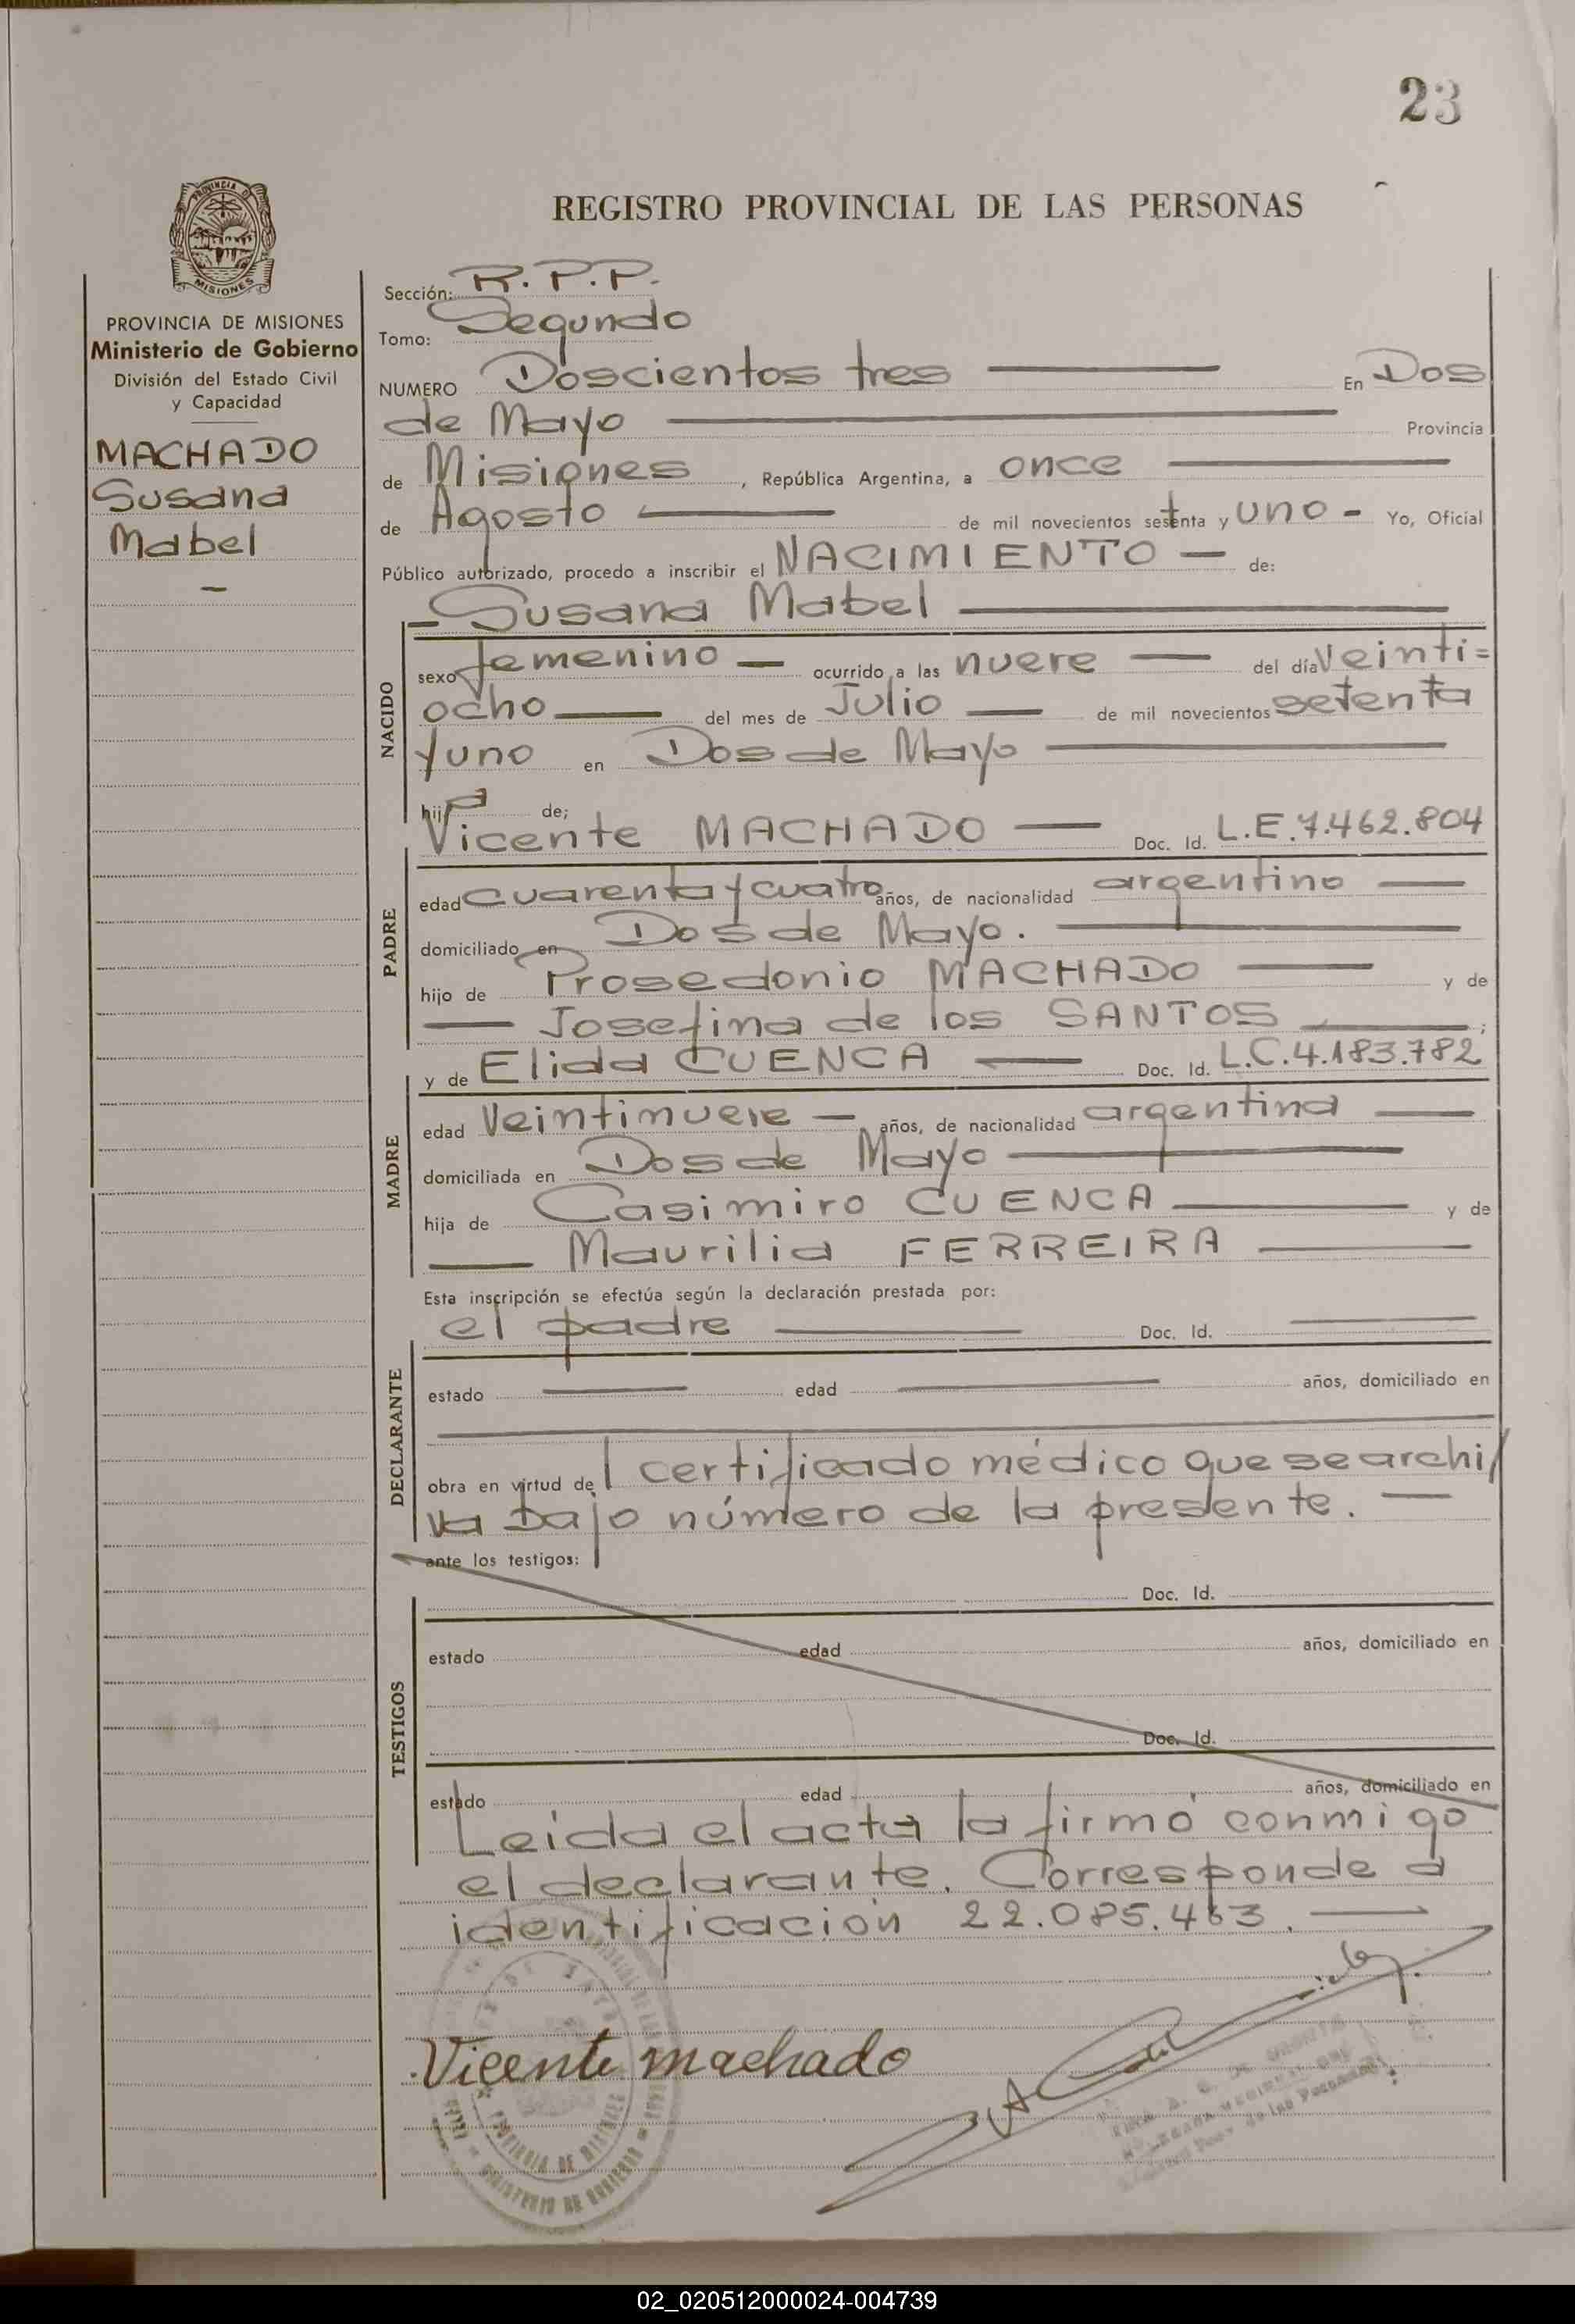 23
PROVINCIA DE
MISIONES
REGISTRO PROVINCIAL DE LAS PERSONAS
PROVINCIA DE MISIONES
Ministerio de Gobierno
División del Estado Civil
y Capacidad
MACHADO
Susana
Mabel
Sección: R.P.P.
Tomo: Segundo
NUMERO Doscientos tres En Dos
de Mayo Provincia
de Misiones, República Argentina, a once
de Agosto de mil novecientos setenta y uno - Yo, Oficial
Público autorizado, procedo a inscribir el NACIMIENTO — de:
Susana Mabel
NACIDO
sexo femenino — ocurrido a las nueve — del día Veinti=
ocho — del mes de Julio — de mil novecientos setenta
y uno en Dos de Mayo
hija de;
Vicente MACHADO — Doc. Id. L.E.7.462.804
PADRE
edad cuarenta y cuatro años, de nacionalidad argentino —
domiciliado en Dos de Mayo.
hijo de Prosedonio MACHADO — y de
— Josefina de los SANTOS — ;
y de Elida CUENCA — Doc. Id. L.C.4.183.782
MADRE
edad Veintinueve — años, de nacionalidad argentina —
domiciliada en Dos de Mayo
hija de Casimiro CUENCA — y de
— Maurilia FERREIRA —
Esta inscripción se efectúa según la declaración prestada por:
el padre — Doc. Id. —
DECLARANTE
estado — edad — años, domiciliado en
obra en virtud del certificado médico que se archi/
va bajo número de la presente. —
ante los testigos:
Doc. Id.
TESTIGOS
estado edad años, domiciliado en
Doc. Id.
estado edad años, domiciliado en
Leída el acta la firmó conmigo
el declarante. Corresponde a
identificación 22.085.463. —
Vicente machado
PROVINCIA DE MISIONES
MINISTERIO DE GOBIERNO
02_020512000024-004739